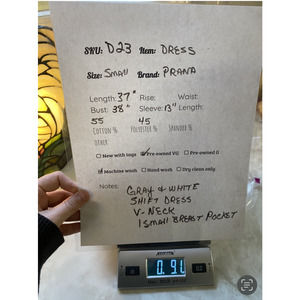 SKU: D23 Item: DRESS
Size: Small Brand: PRANA
Length: 37" Rise: Waist:
Bust: 38" Sleeve: 13" Length:
55 45
COTTON % POLYESTER % SPANDEX %
OTHER
New with tags ✓ Pre-owned VG Pre-owned G
✓ Machine wash Hand wash Dry clean only
Notes: GRAY & WHITE
SHIFT DRESS
V-NECK
1 SMALL BREAST POCKET
0.9L